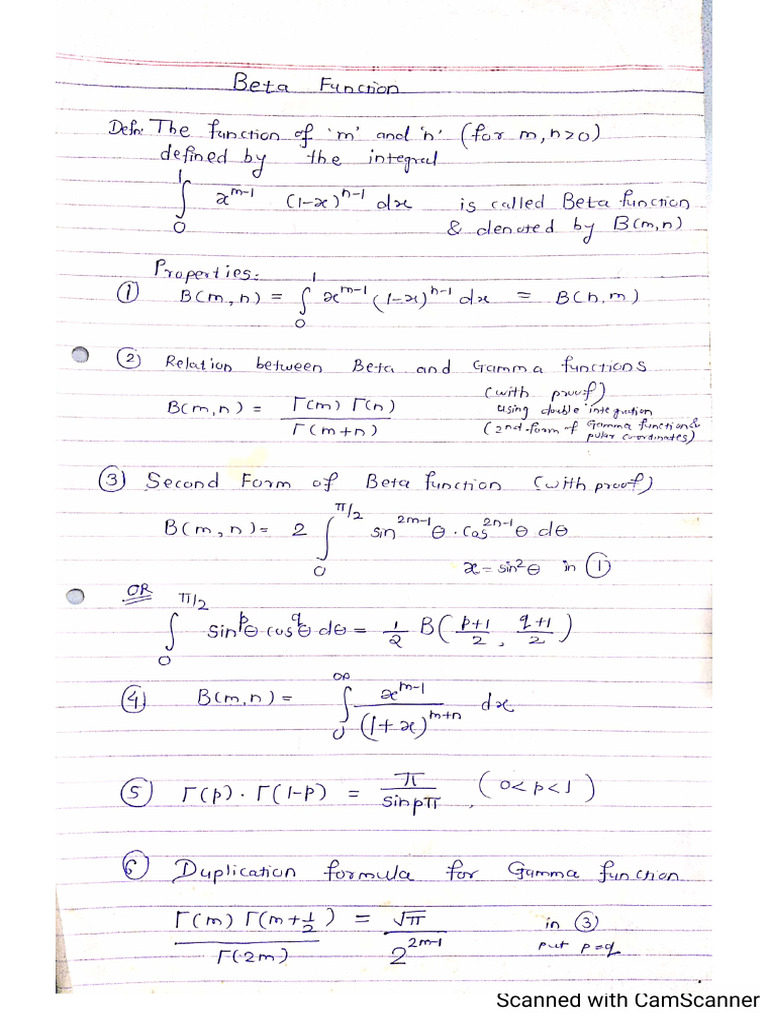 Beta Function
Defn: The function of 'm' and 'n' (for m, n>0)
defined by the integral
∫₀¹ x^(m-1) (1-x)^(n-1) dx is called Beta function
& denoted by B(m,n)
Properties:
① B(m,n) = ∫₀¹ x^(m-1) (1-x)^(n-1) dx = B(n,m)
② Relation between Beta and Gamma functions
(with proof)
B(m,n) = Γ(m) Γ(n) / Γ(m+n) using double integration
(2nd form of Gamma function &
polar coordinates)
③ Second Form of Beta function (with proof)
B(m,n) = 2 ∫₀^(π/2) sin^(2m-1) θ · cos^(2n-1) θ dθ
x = sin²θ in ①
OR
∫₀^(π/2) sin^p θ cos^q θ dθ = 1/2 B(p+1/2, q+1/2)
④ B(m,n) = ∫₀^∞ x^(m-1) / (1+x)^(m+n) dx
⑤ Γ(p) · Γ(1-p) = π / sin pπ (0<p<1)
⑥ Duplication formula for Gamma function
Γ(m) Γ(m+1/2) / Γ(2m) = √π / 2^(2m-1) in ③
put p=q
Scanned with CamScanner